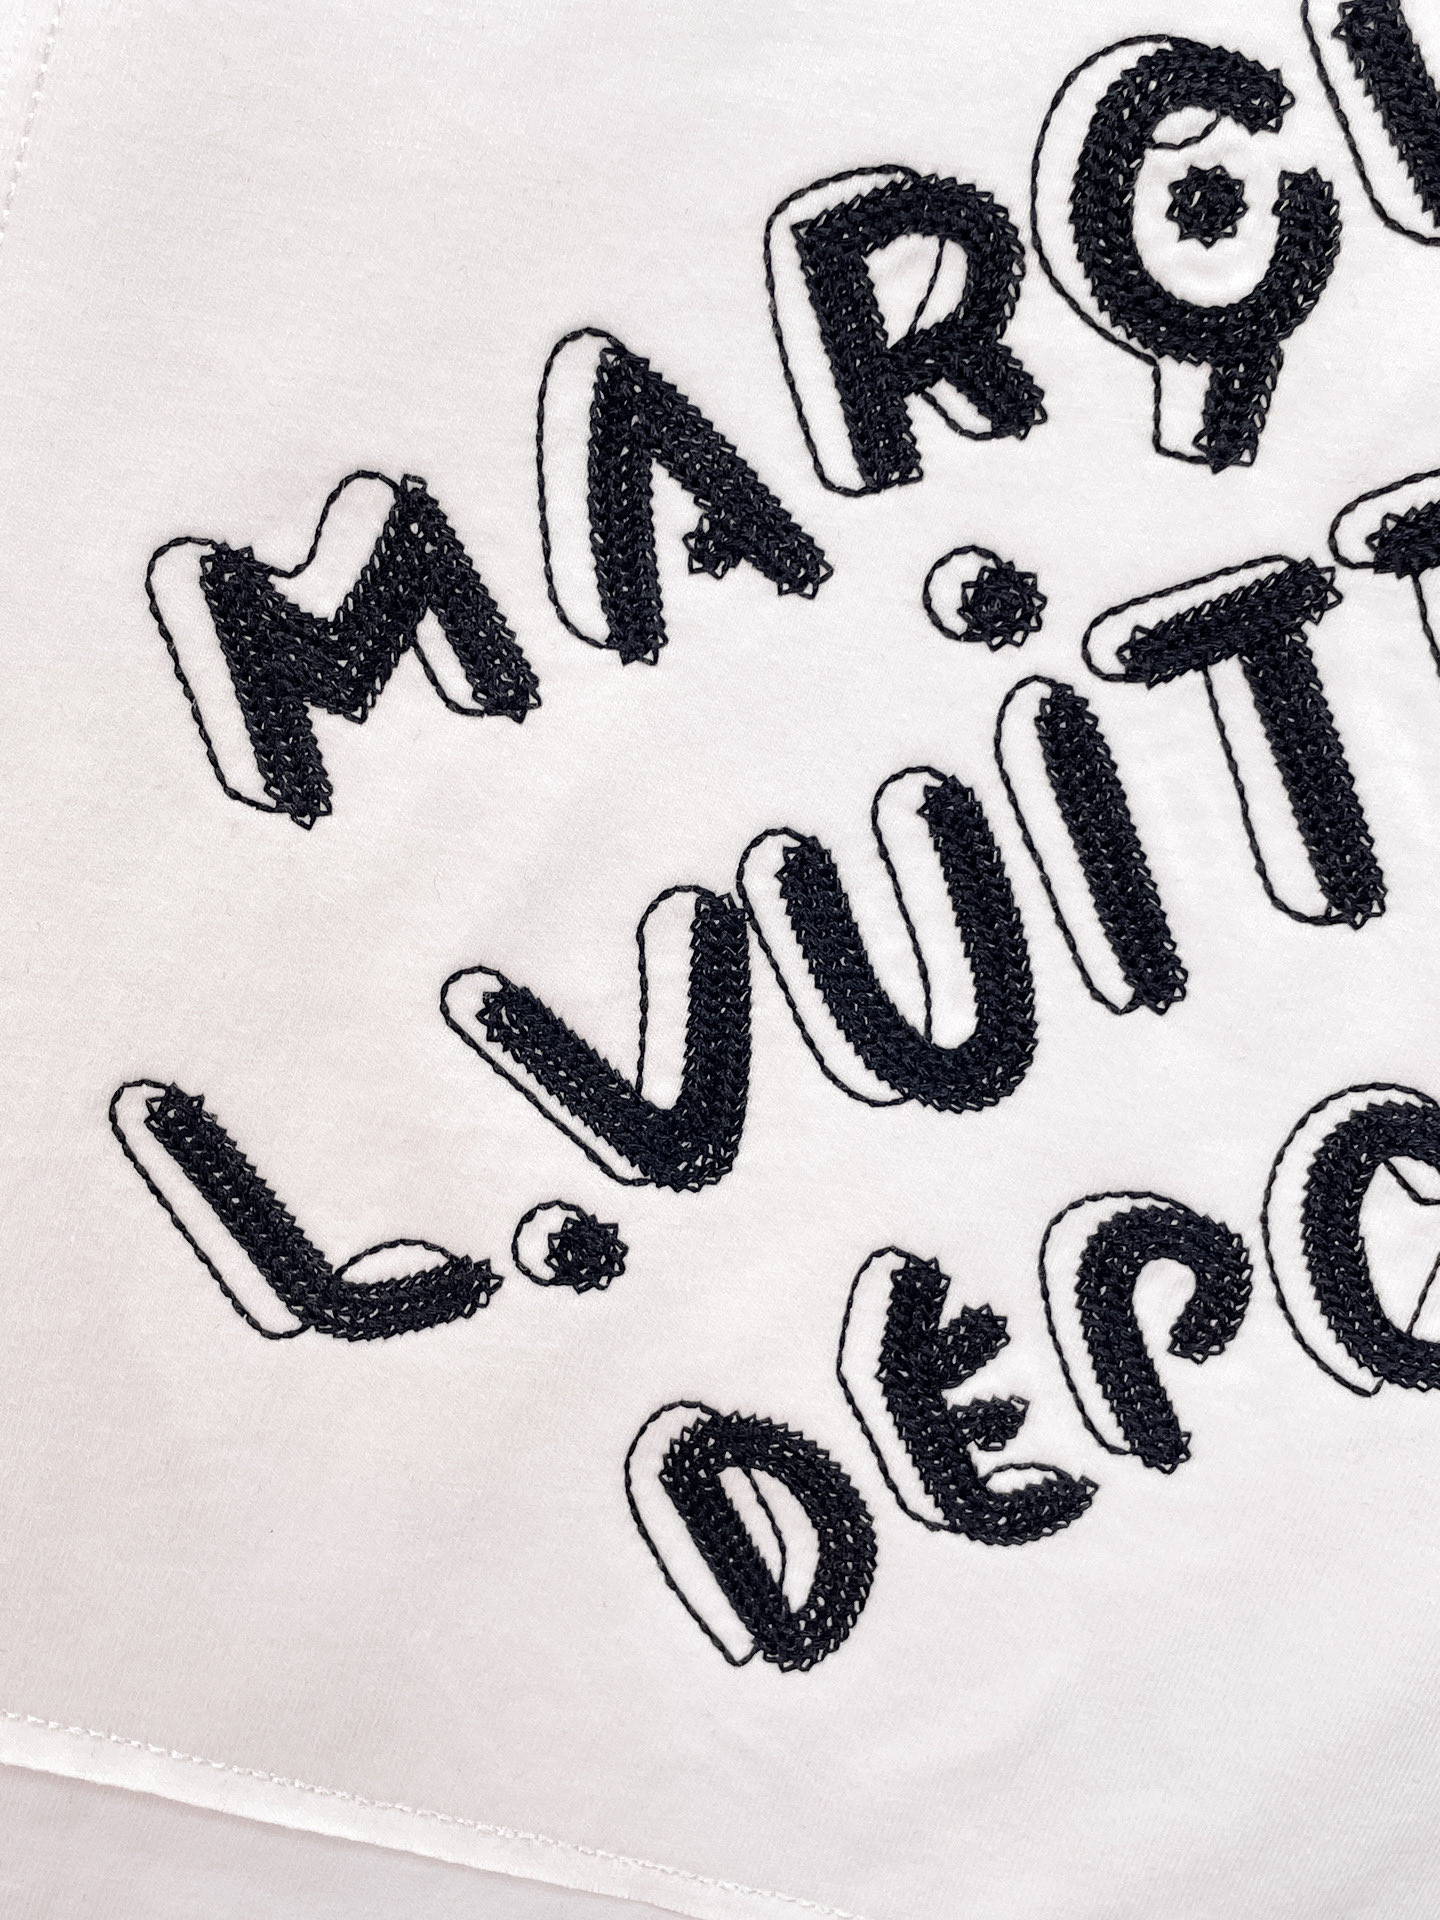 MARQU
L.VUITT
DÉPO